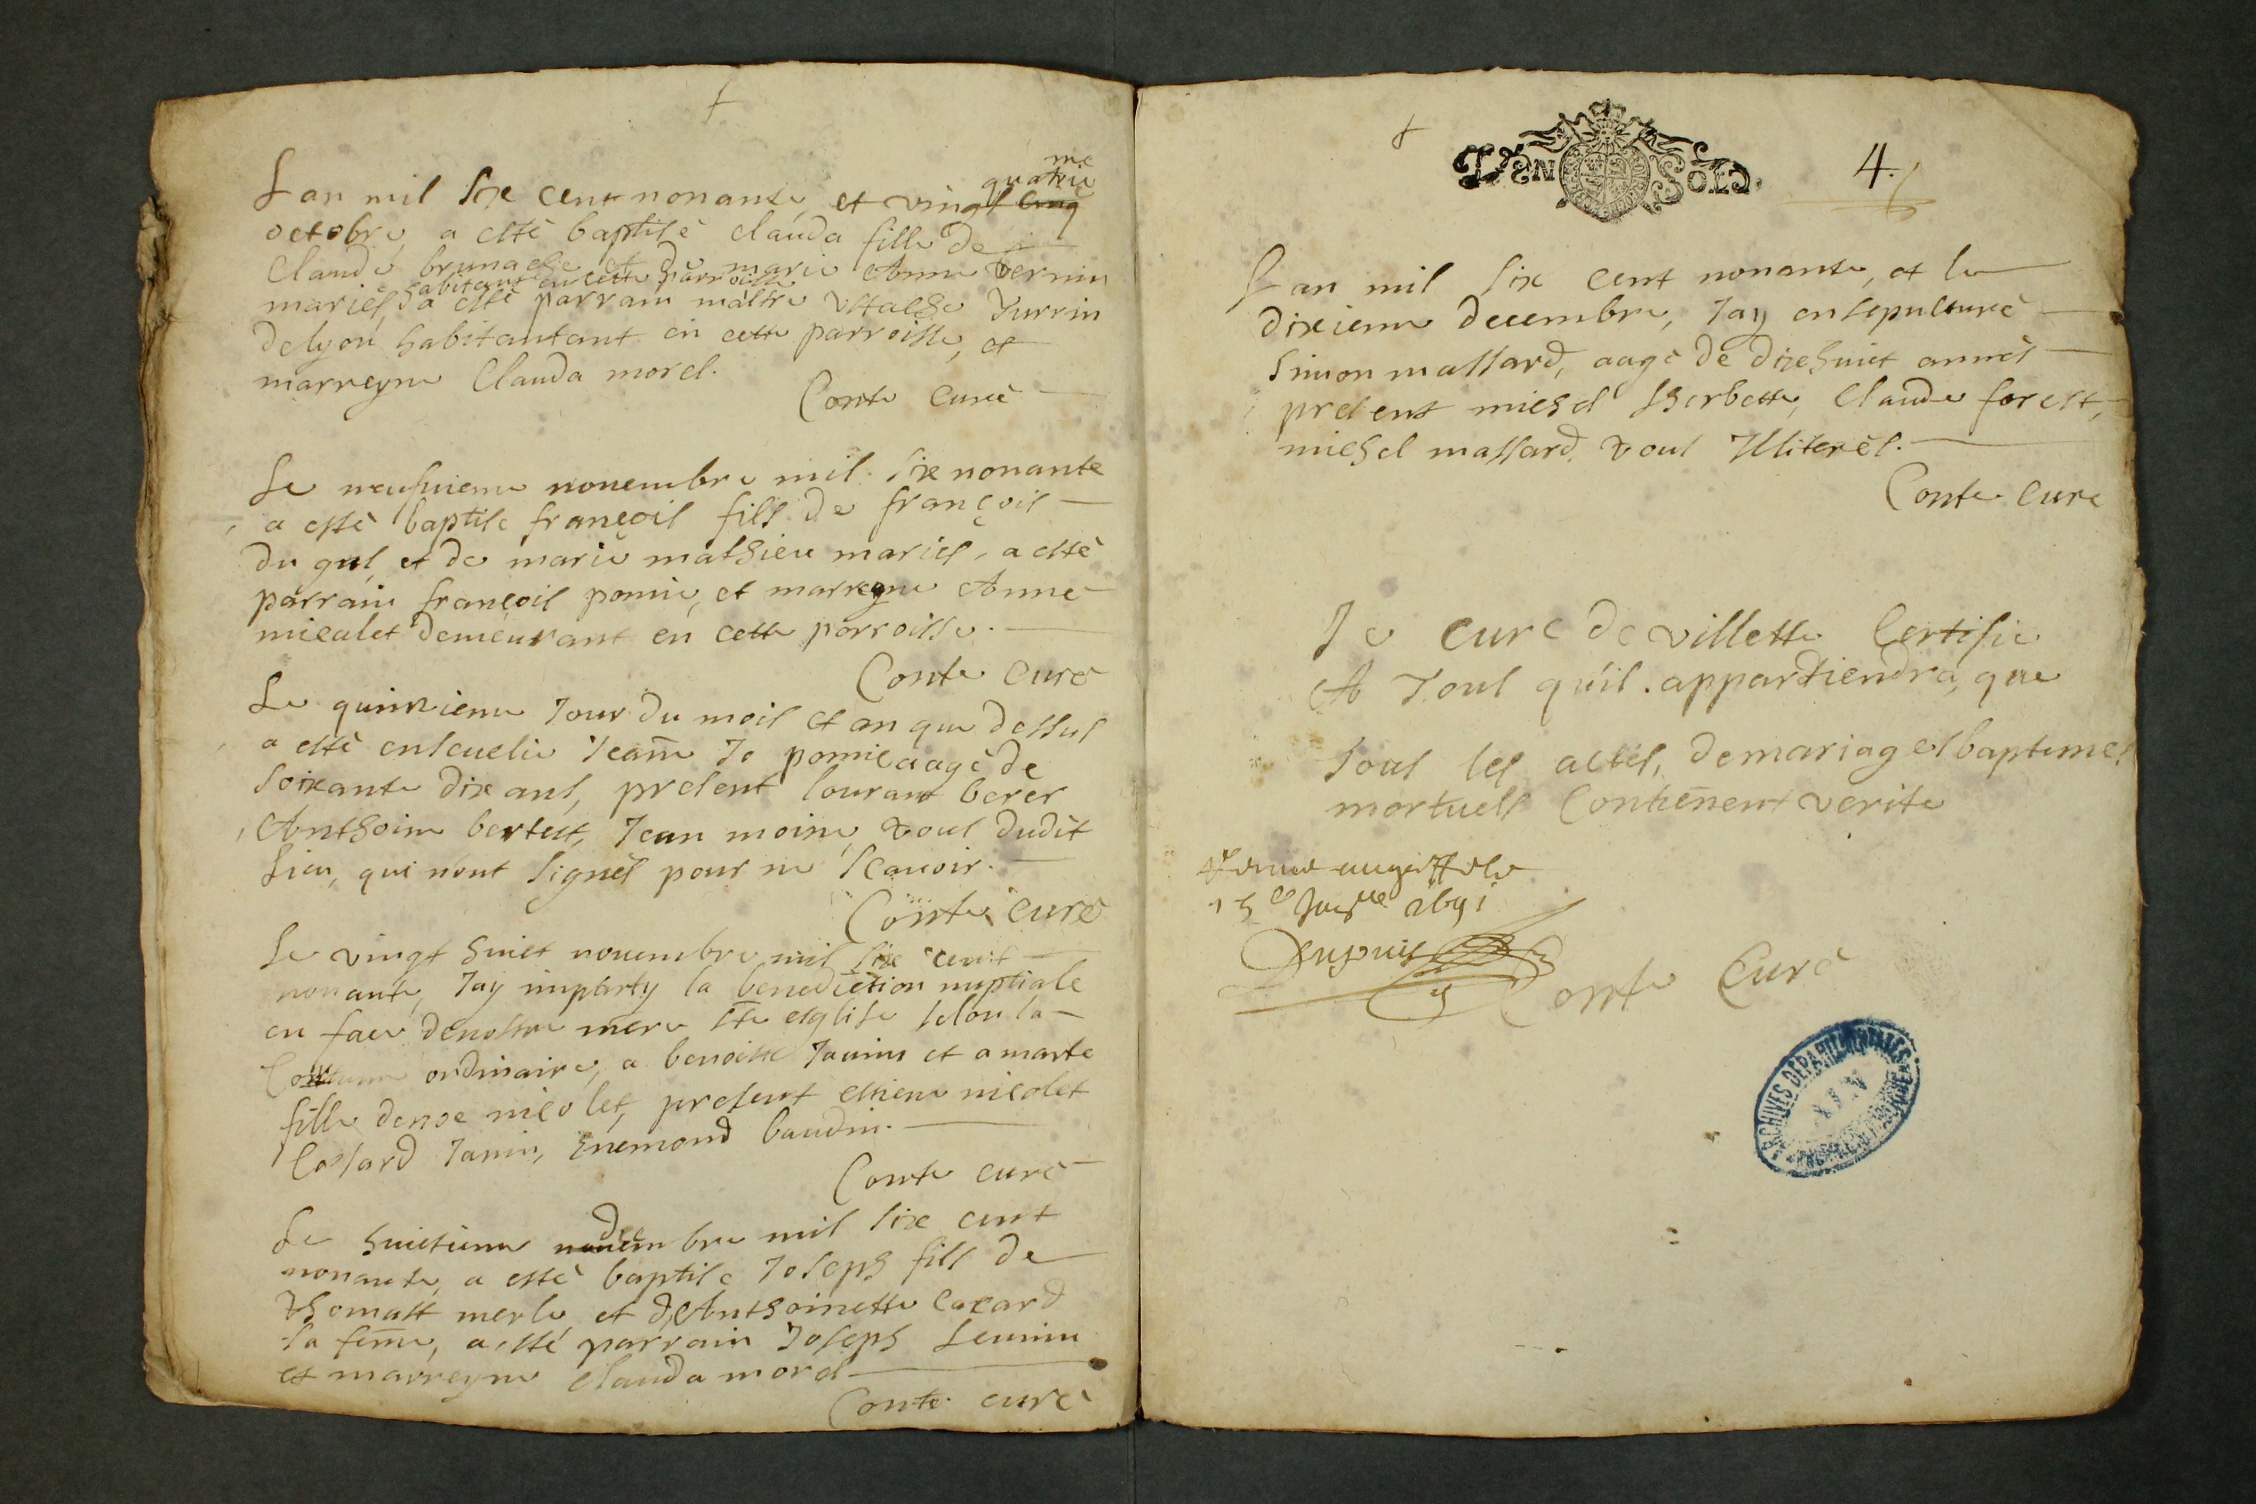 Lan mil six cent nonante, et vingt quatrie me
octobre, a esté baptisé clauda fille de
Claude brunache et de marie Anne vernin
mariés, habitant en cette parroisse
a esté parrain maitre ustache Yurrin
de lyon habitantant en cette parroisse, et
marreyne Clauda morel.
Conte Curé
Le neufvieme novembre mil six nonante
a esté baptise françois fils de françois
du gul et de marie mathieu mariés, a esté
parrain françois pomie, et marreyne Anne
micalet demeurant en cette parroisse.
Conte Curé
Le quinzieme Jour du mois et an que dessus
a esté ensevelie Jeanne pomie aagé de
soixante dix ans, present lourant berer
Anthoine bertest, Jean moine, tous dudit
Lieu, qui nont signés pour ne scavoir.
Conte Curé
Le vingt huict novembre mil six cent
nonante, Jay imparty la benediction nuptiale
en face de nostre mere ste esglise selon la
Coutume ordinaire, a benoist Janin et a marte
fille de nicolet, present estiene nicolet
Cossard Janin, Enemond baudin.
Conte curé
Le huictieme decembre mil six cent
nonante, a esté baptise Joseph fils de
thomass merle et d'Anthoinette cazard
sa feme, a esté parrain Joseph Lemine
et marreyne Clauda morel
Conte curé
UN SOLD.
4.
Lan mil six cent nonante, et le
dixieme decembre, Jay ensepulturé
simon massard, aagé de dixhuict annés
present michel sherbette, Claude forest,
michel massard. tous Illiterés.
Conte Cure
Je curé de villette Certifie
A Tous qu'il appartiendra, que
tous les actes, de mariages baptemes
mortuels Contienent verite
au greffe le
15e 1691
Dupuis
Conte Curé
ARCHIVES DEPARTEMENTALES